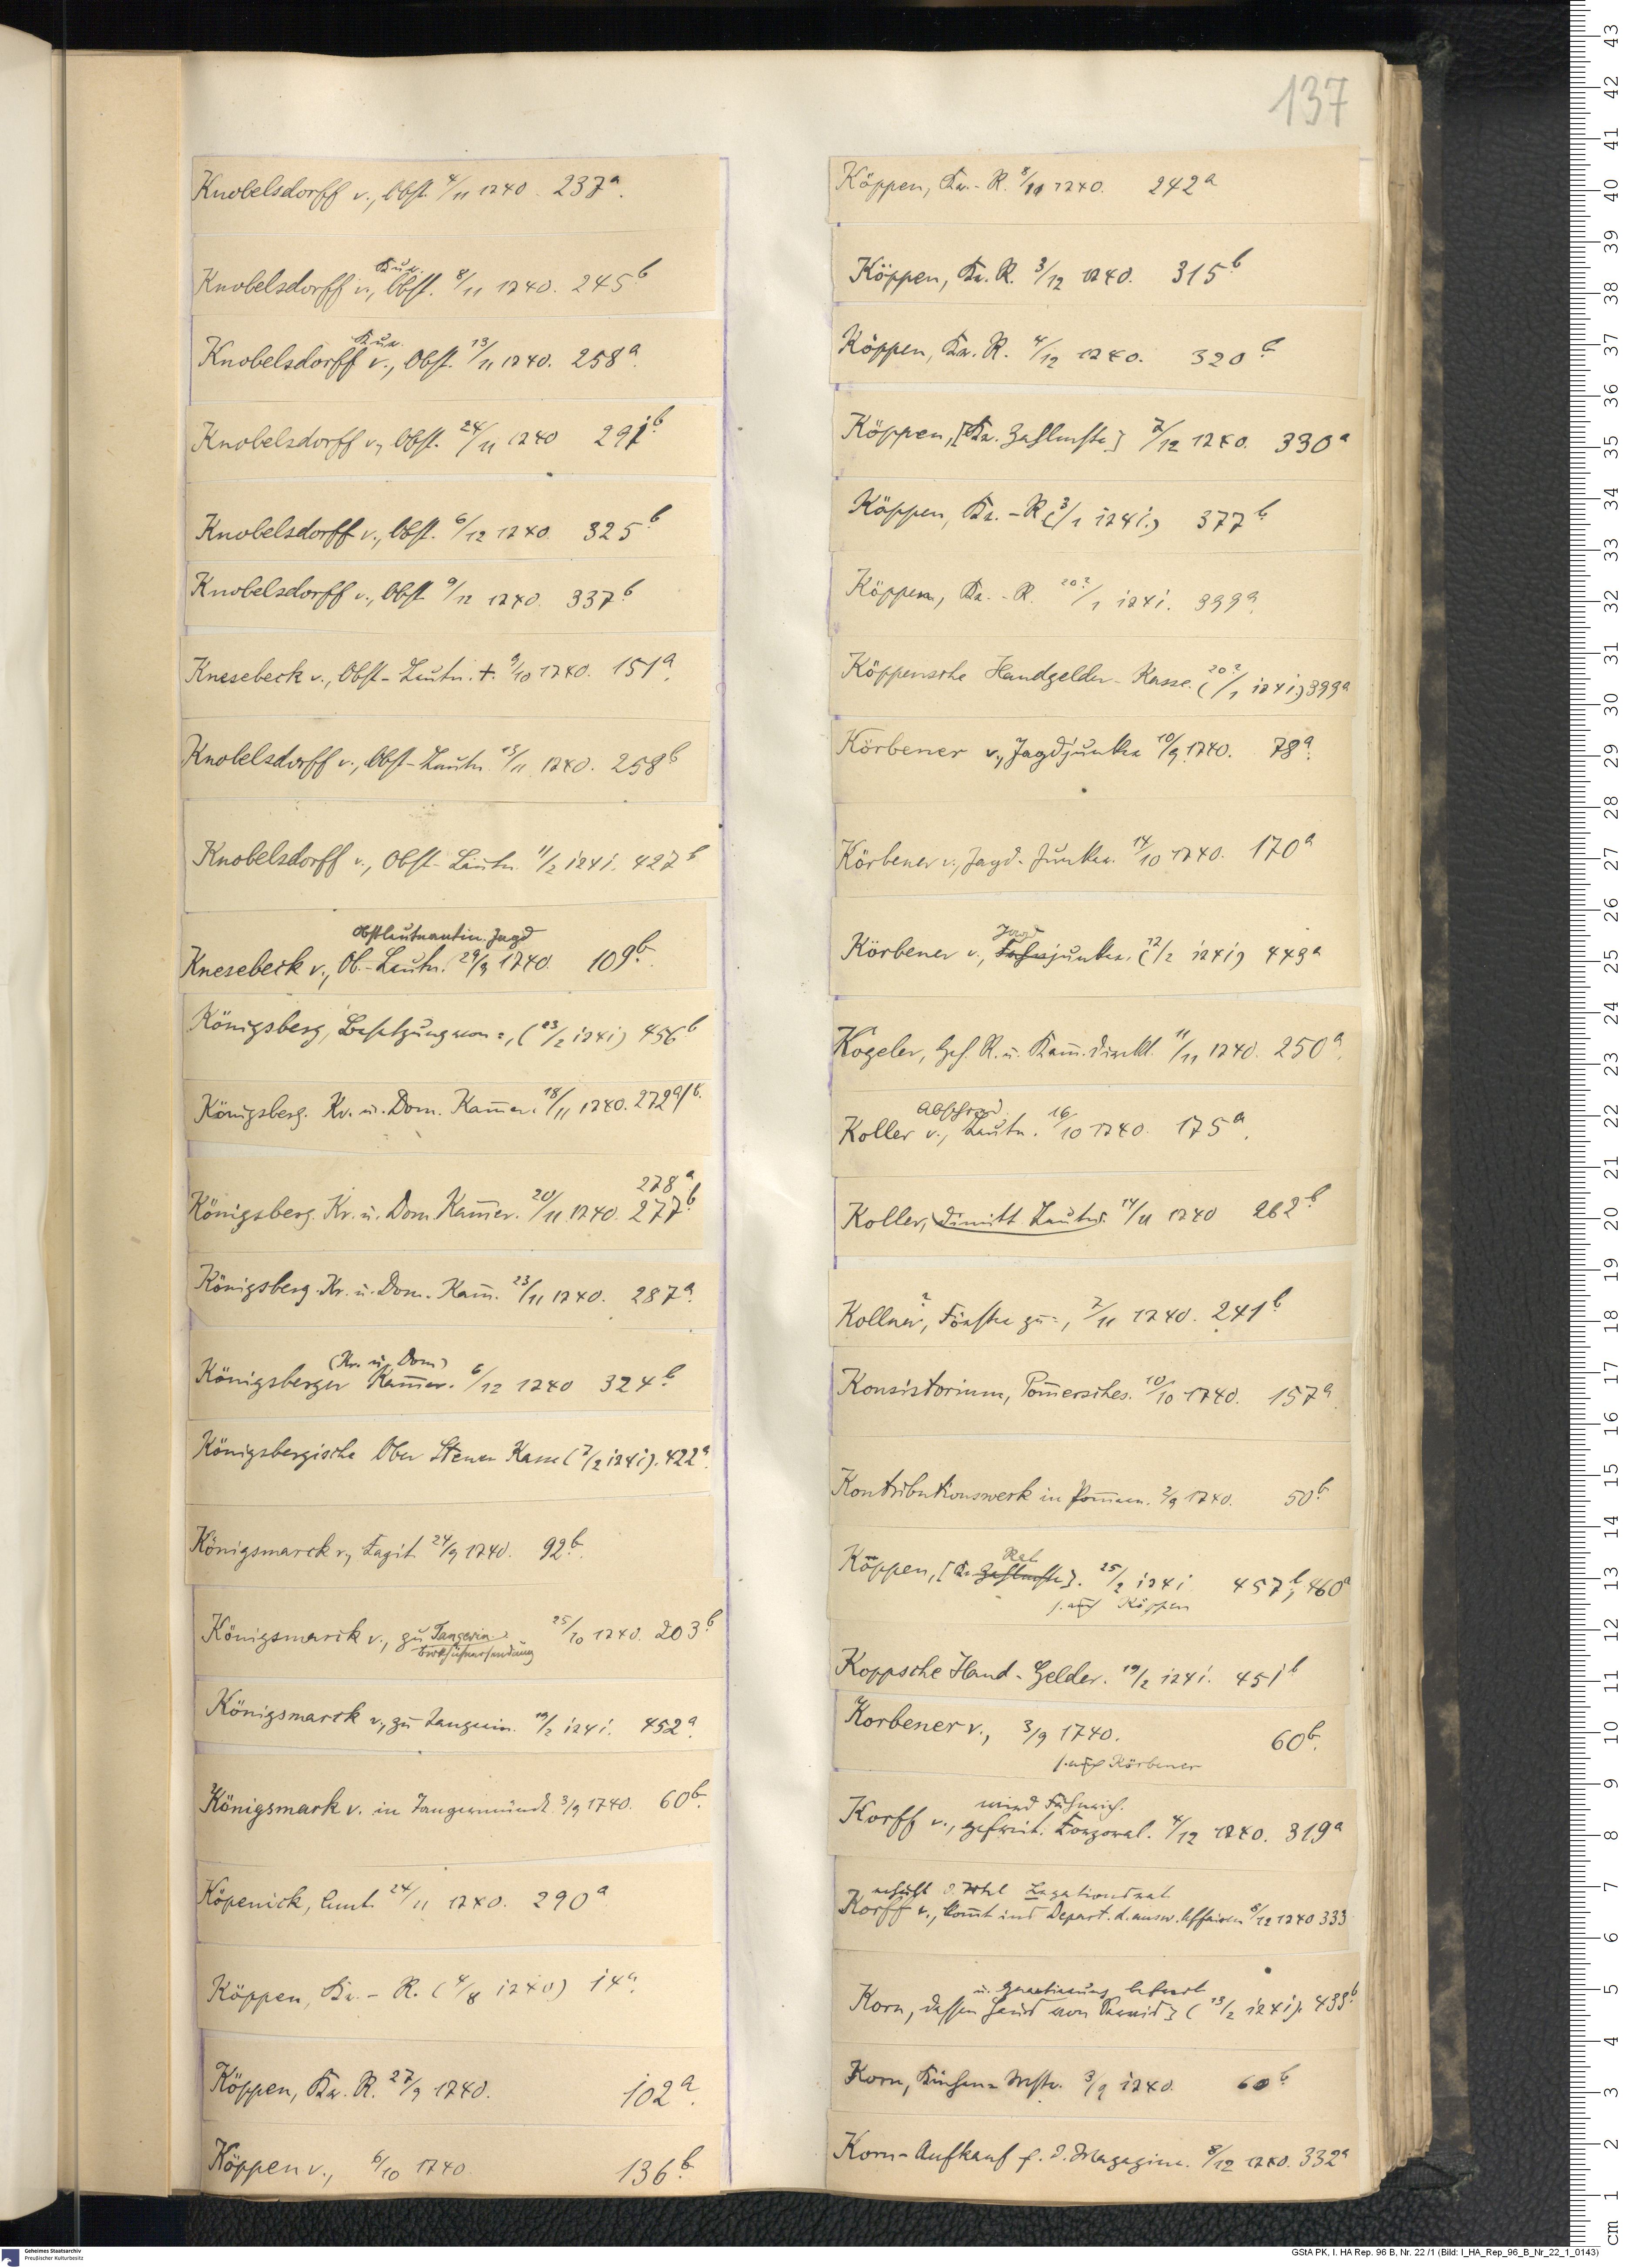 137
Knobelsdorff v., Obst. 4/11 1740. 237a.
Kür.
Knobelsdorff v., Obst. 8/11 1740. 245b
Kür.
Knobelsdorff v., Obst. 13/11 1740. 258a.
Knobelsdorff v., Obst. 24/11 1740 291b
Knobelsdorff v., Obst. 6/12 1740. 325b
Knobelsdorff v., Obst. 9/12 1740. 337b
Knesebeck v., Obst-Leutn. +. 9/10 1740. 151a.
Knobelsdorff v., Obst-Leutn. 13/11 1740. 258b
Knobelsdorff v., Obst-Leutn. 11/2 1741. 427b
Obstleutnantin. Jagd
Knesebeck v., Ob.-Leutn. 29/9 1740. 109b.
Königsberg, Besetzung von =, (23/2 1741) 456b
Königsberg. Kr. u. Dom. Kam̄er. 18/11 1740. 272a/b.
278a.
Königsberg. Kr. u. Dom. Kam̄er. 20/11 1740. 277b
Königsberg. Kr. u. Dom. Kam̄. 23/11 1740. 287a.
(Kr. u. Dom)
Königsberger Kam̄er. 6/12 1740 324b.
Königsbergische Ober Steuer Kasse (7/2 1741). 422a.
Königsmarck v., Capit. 24/9 1740. 92b.
Königsmarck v., zu Tangerin. 25/10 1740. 203b.
Königsmarck v., zu Tangerin. 19/2 1741. 452a.
Königsmark v. in Tangermünde. 3/9 1740. 60b.
Köpenick, Amt. 24/11 1740. 290a
Köppen, Kr. - R. (4/8 1740) 14a
Köppen, Kr. R. 27/9 1740. 102a.
Köppen v., 6/10 1740. 136b.
Köppen, Kr.-R. 8/11 1740. 242a
Köppen, Kr. R. 3/12 1740. 315b
Köppen, Kr. R. 4/12 1740. 320b
Köppen, [Kr. Zahlmstr.] 7/12 1740. 330a
Köppen, Kr. - R. (3/1 1741.) 377b.
Köppen, Kr. - R. 20?/1 1741. 399a.
Köppensche Handgelder-Kasse. (20?/1 1741) 399a
Körbener v., Jagdjunker 10/9 1740. 78a.
Körbener v., Jagd-Junker. 14/10 1740. 170a
Jagd
Körbener v., junker. (17/2 1741) 449a
Kogeler, Geh. R. u. Kam̄. Direkt. 11/11 1740. 250a.
Abschied.
Koller v., Leutn. 16/10 1740. 175a.
Koller, dimitt. Leutn. 14/11 1740 262b
?
Kollner, Förster zu =, 7/11 1740. 241b
Konsistorium, Pom̄ersches. 10/10 1740. 157a.
Kontributionswerk in Pom̄ern. 2/9 1740. 50b.
Rat
Köppen, [Kr. Zahlmstr.]. 25/2 1741 457b, 460a
s. auch Köppen
Koppsche Hand-Gelder. 19/2 1741. 451b
Korbener v., 3/9 1740. 60b.
s. auch Körbener
wird Fähnrich.
Korff v., gefreit. Corporal. 4/12 1740. 319a
erhält d. Titel Legationsrat
Korff v., kom̄t ins Depart. d. ausw. Affairen 8/12 1740 333
Korn, dessen (13/2 1741). 433b.
Korn, Küchen-Mstr. 3/9 1740. 60b
Korn-Aufkauf f. d. Magazine. 8/12 1740. 332a
Geheimes Staatsarchiv
Preußischer Kulturbesitz
GStA PK, I. HA Rep. 96 B, Nr. 22 /1 (Bild: I_HA_Rep_96_B_Nr_22_1_0143)